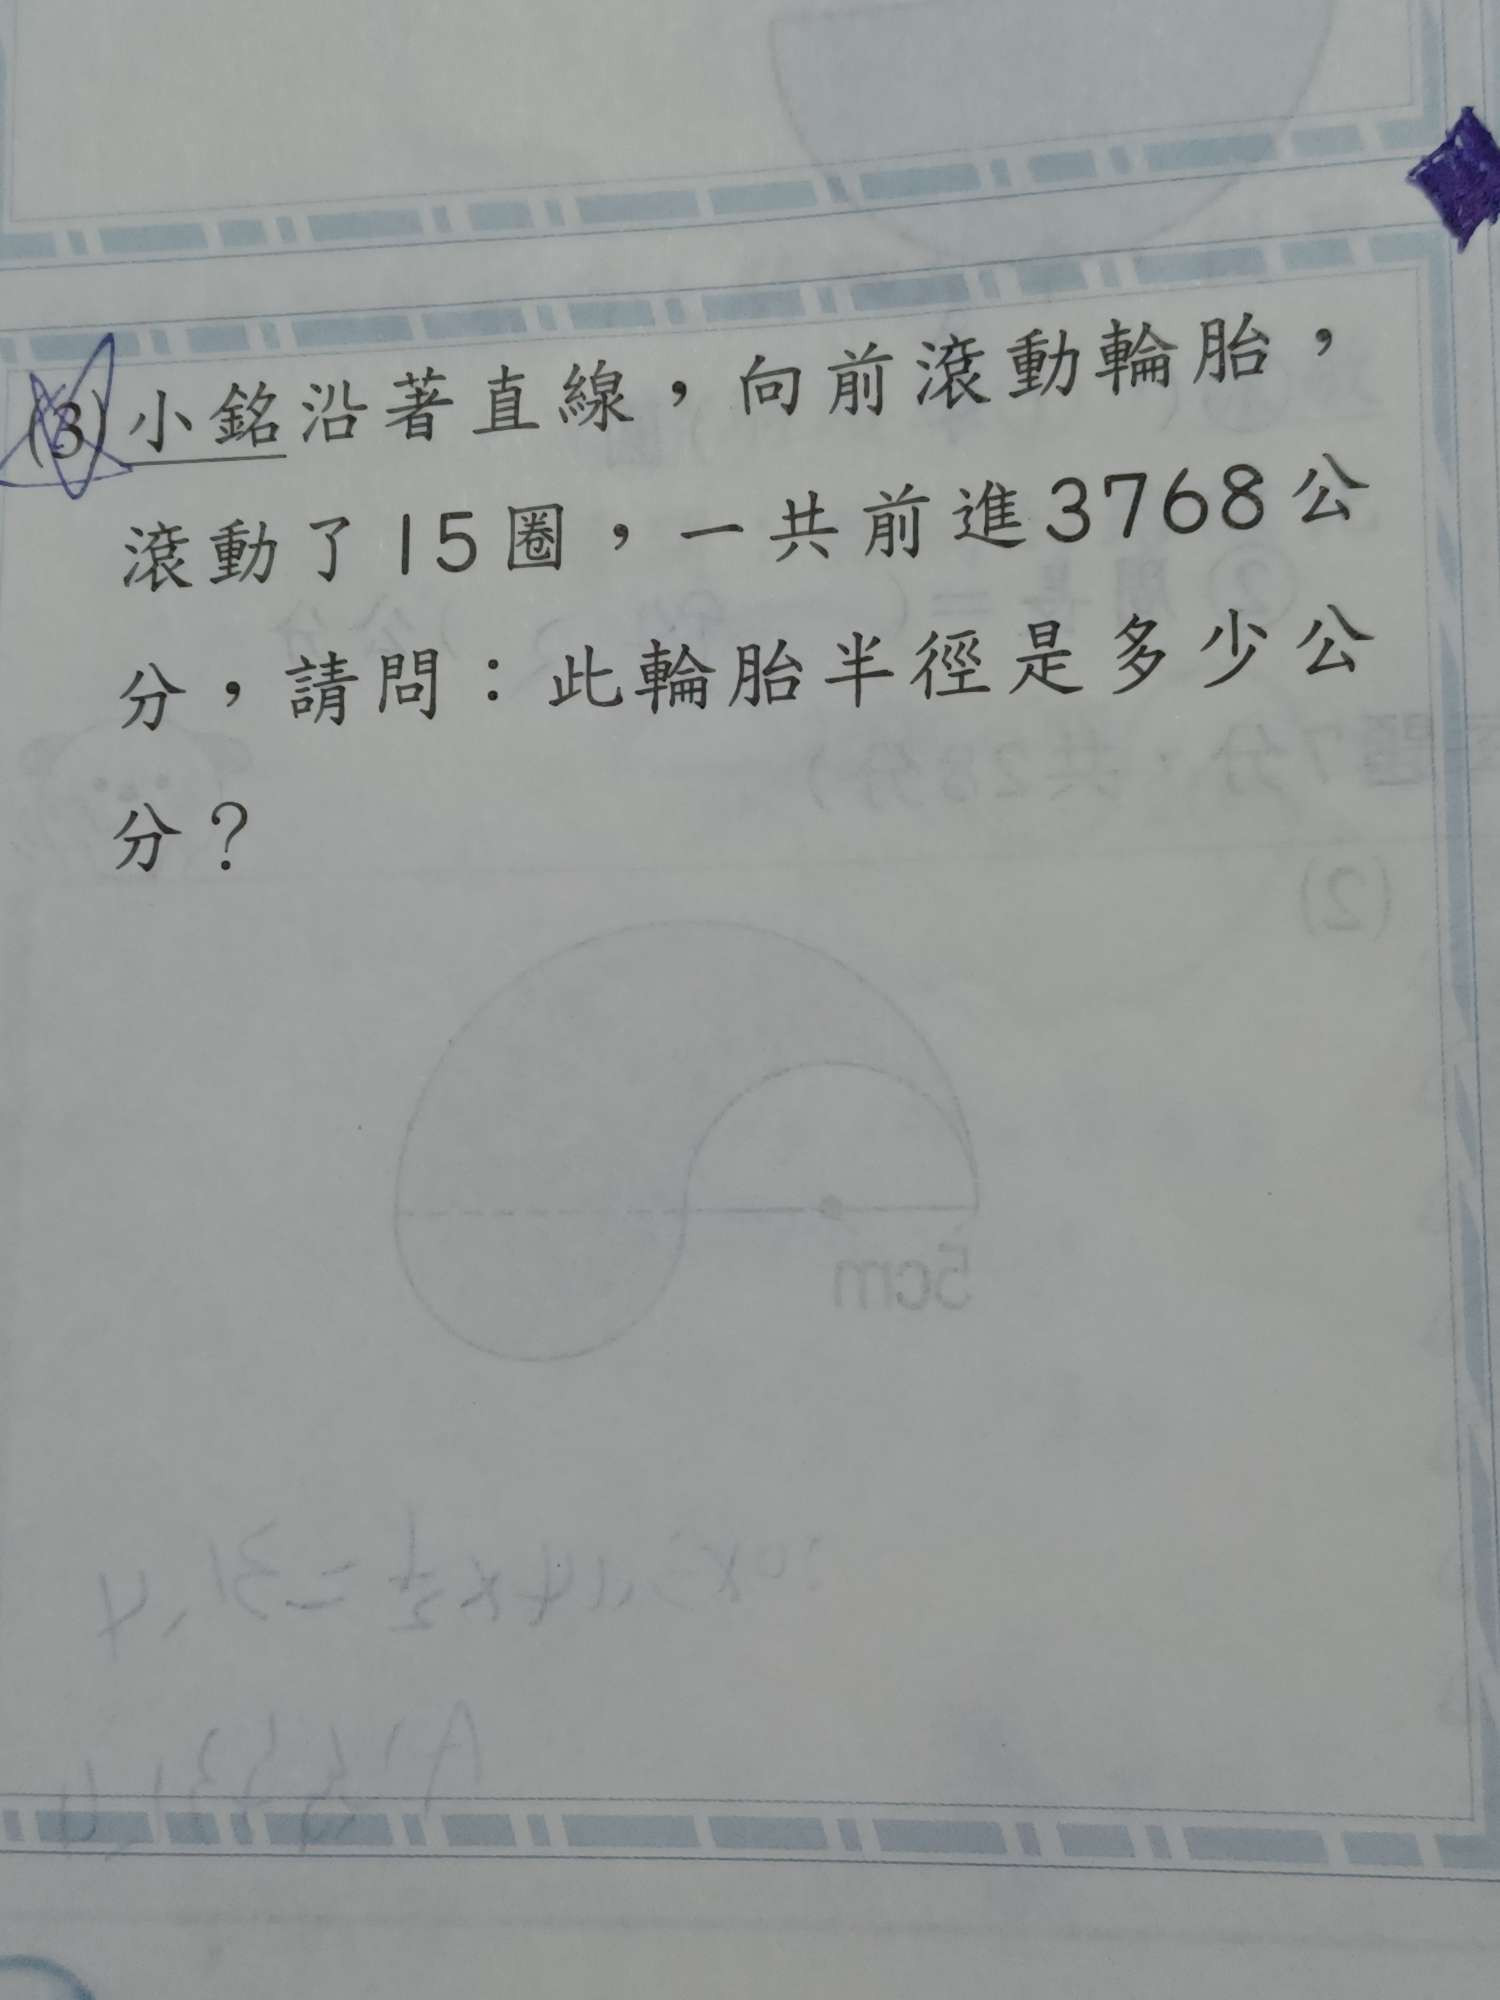 (3)小銘沿著直線，向前滾動輪胎，
滾動了15圈，一共前進3768公
分，請問：此輪胎半徑是多少公
分？
(2)
5cm